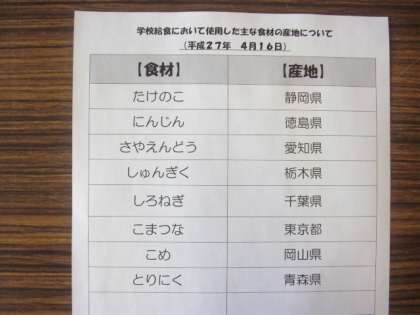 学校給食において使用した主な食材の産地について
（平成２７年　４月１６日）
【食材】 【産地】
たけのこ 静岡県
にんじん 徳島県
さやえんどう 愛知県
しゅんぎく 栃木県
しろねぎ 千葉県
こまつな 東京都
こめ 岡山県
とりにく 青森県